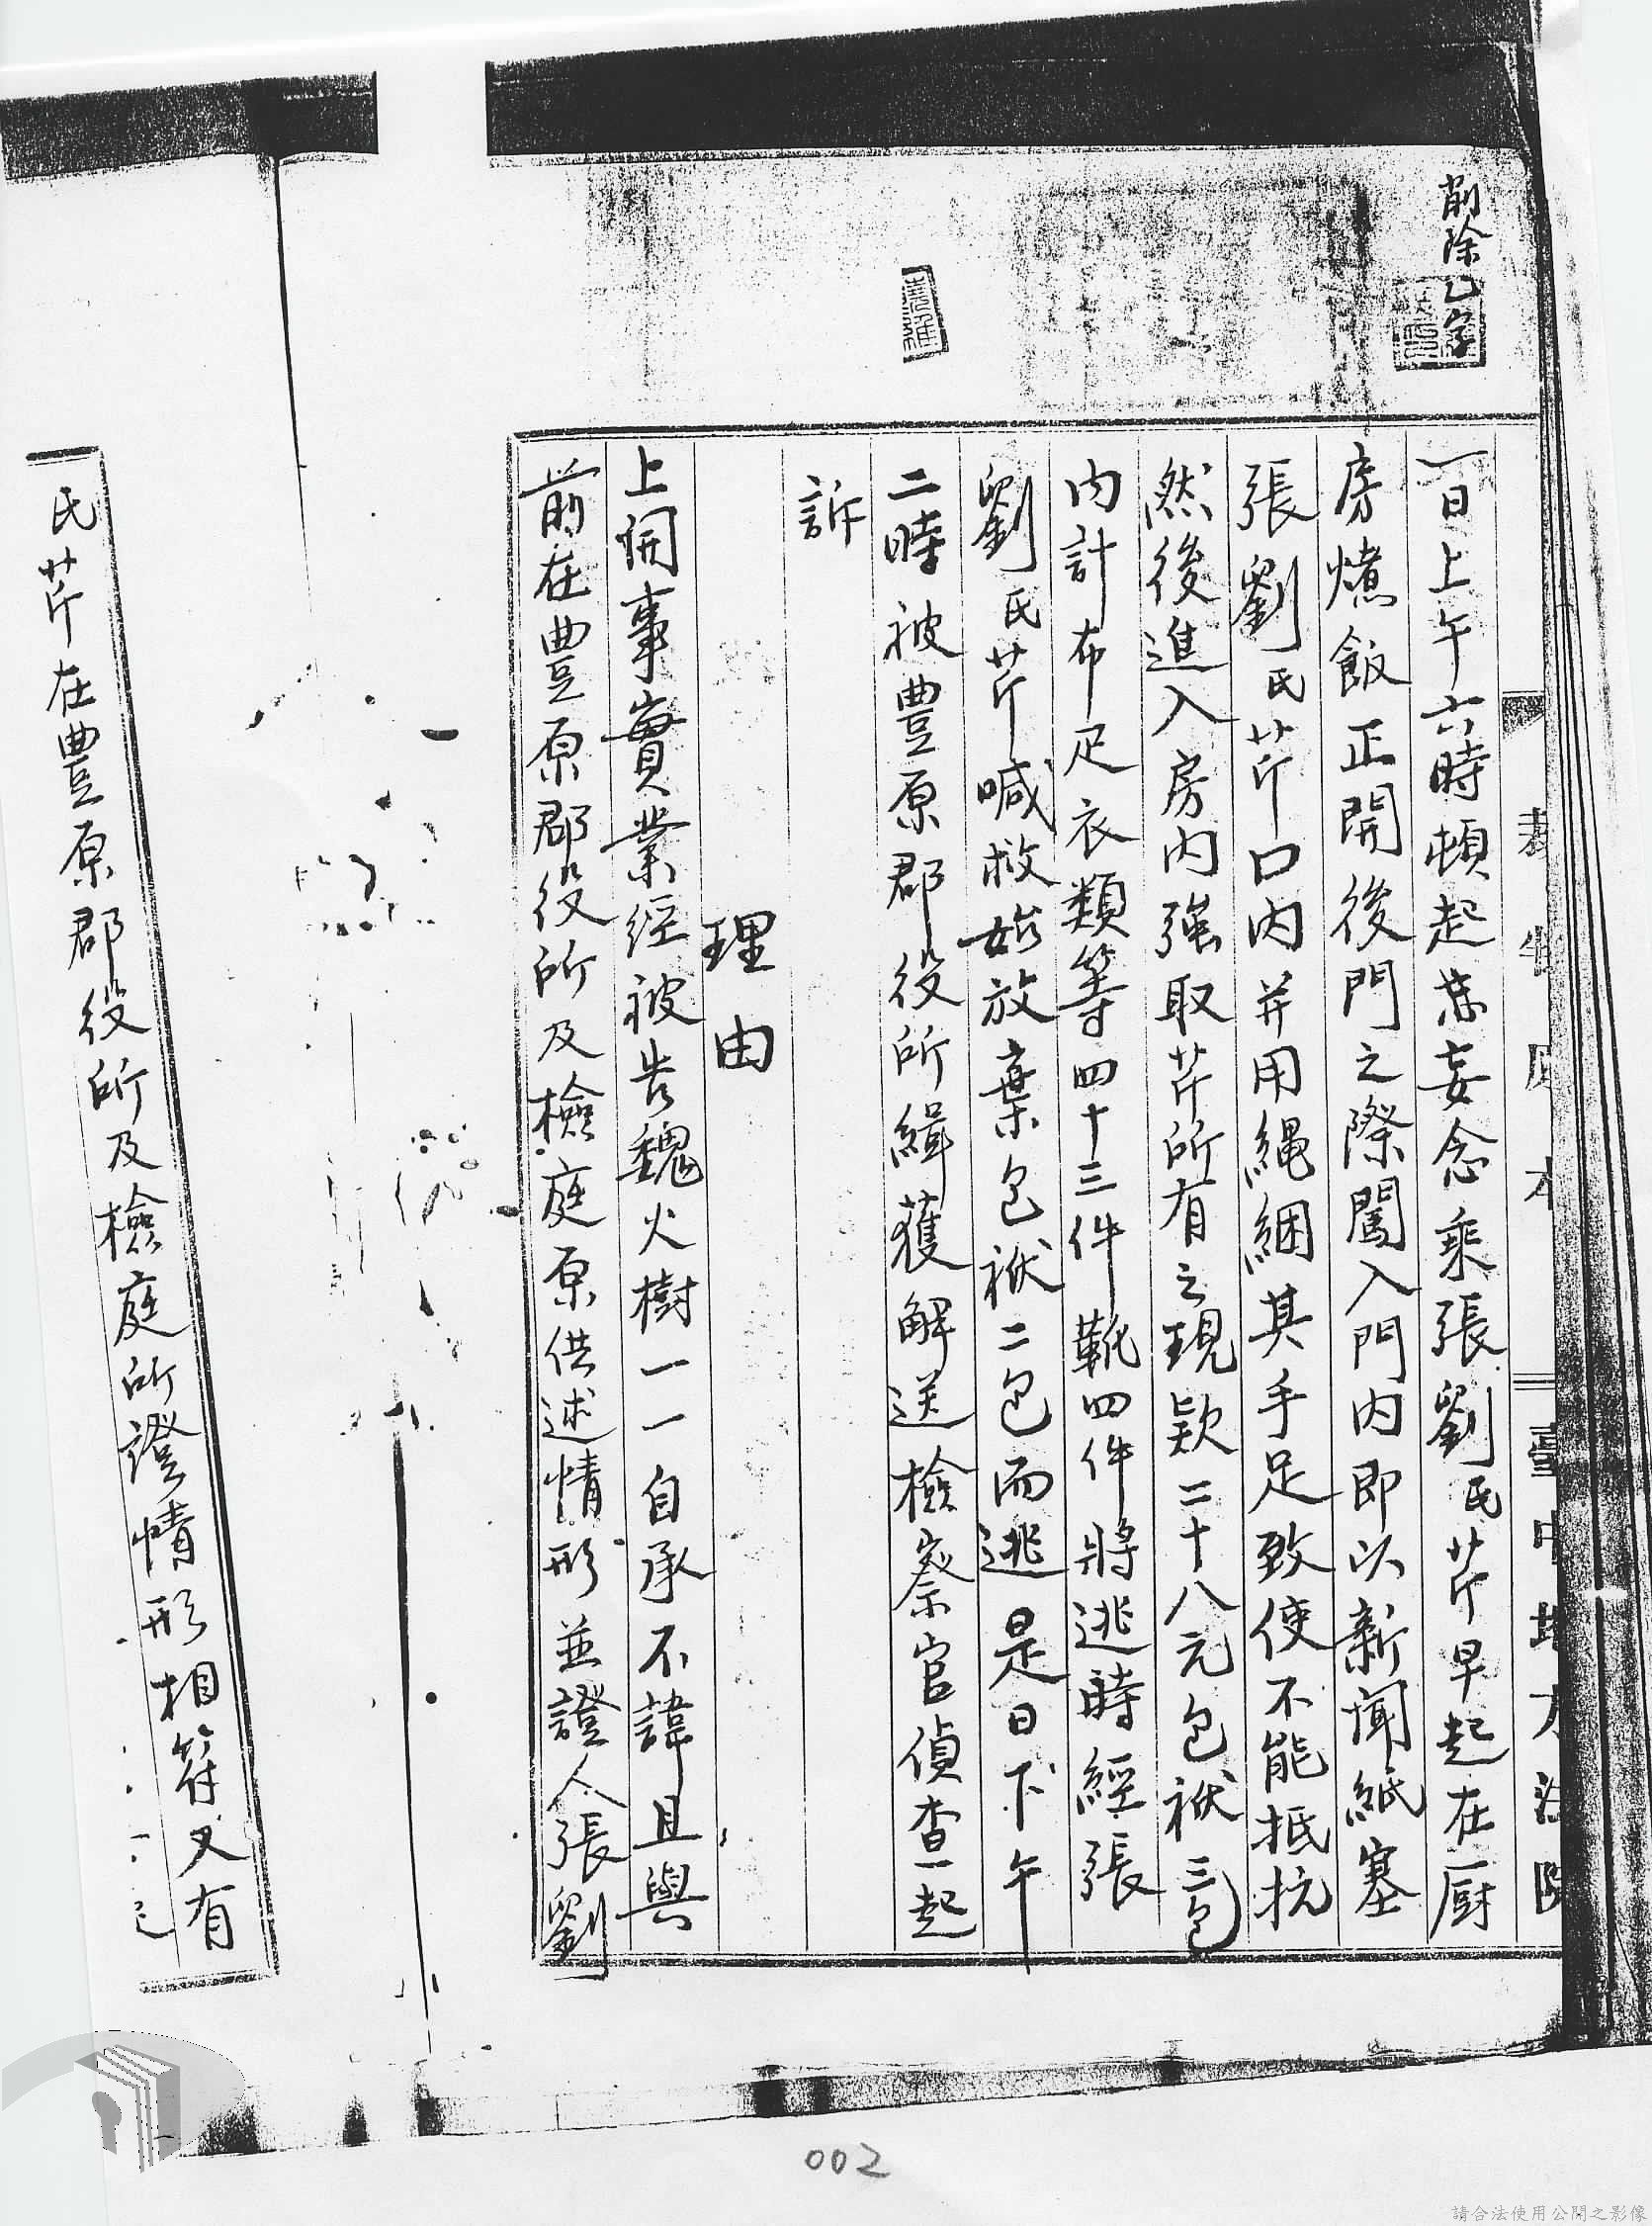 削除乙字
裁判原本
臺中地方法院
一日上午六時頓起惡妄念乘張劉氏芹早起在厨
房燻飯正開後門之際闖入門内即以新聞紙塞
張劉氏芹口内并用繩綑其手足致使不能抵抗
然後進入房内強取芹所有之現款二十八元包袱三包
内計布疋衣類等四十三件靴四件將逃時經張
劉氏芹喊救始放棄包袱二包而逃是日下午
二時被豊原郡役所緝獲解送檢察官偵查起
訴
理由
上開事實業經被告魏火樹一一自承不諱且與
前在豊原郡役所及檢庭原供述情形並證人張劉
氏芹在豊原郡役所及檢庭所證情形相符又有
002
請合法使用公開之影像